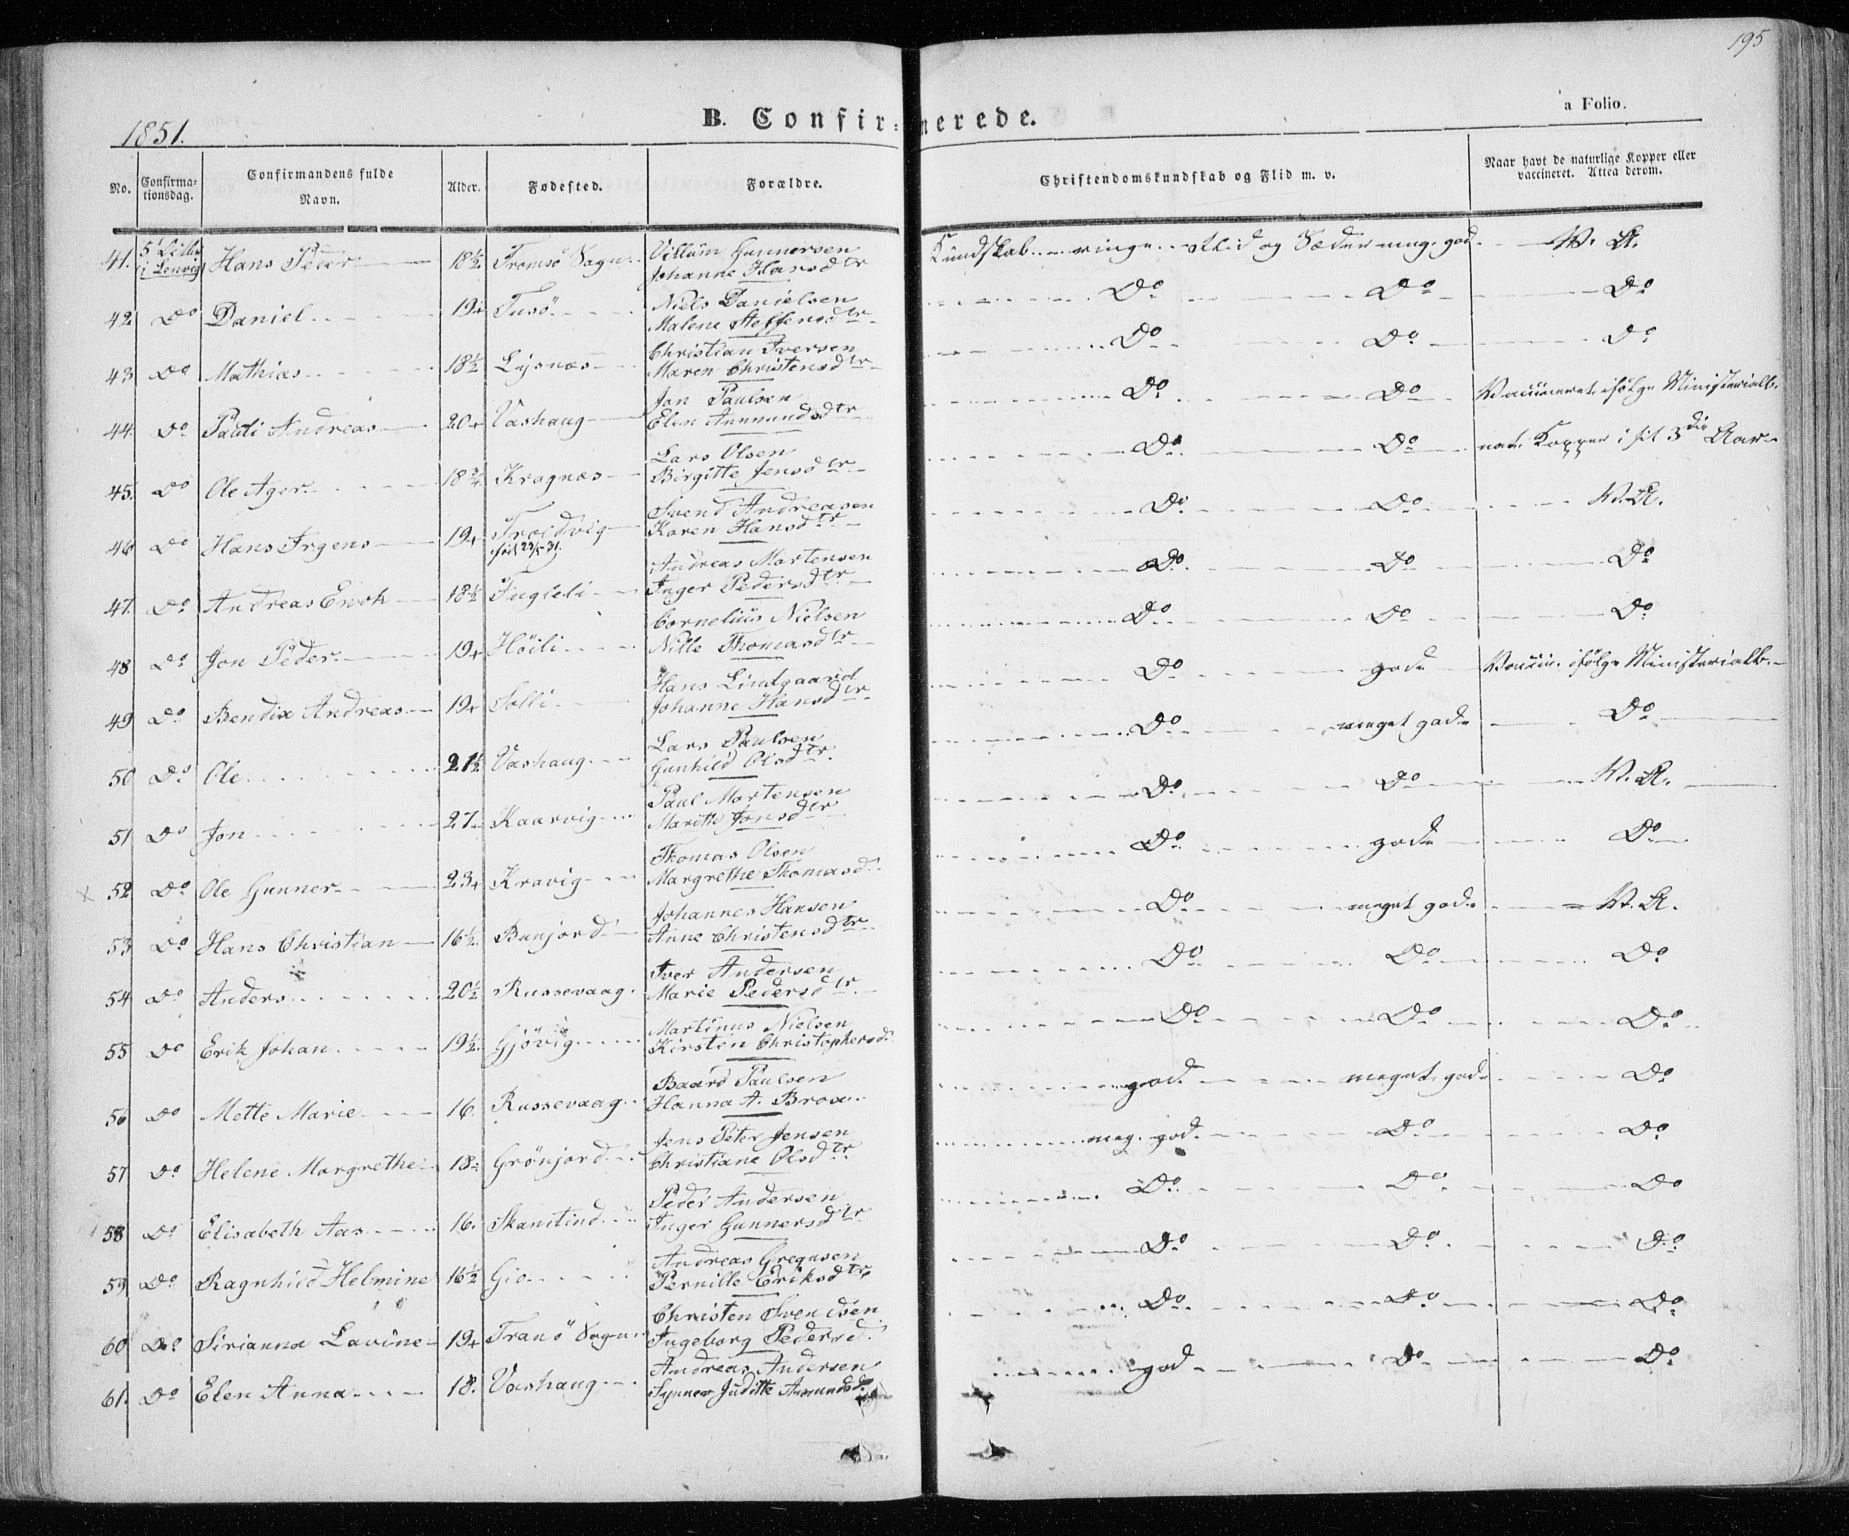 195
1851.
B. Confirmerede.
a Folio.
No.
Confirmationsdag.
Confirmandens fulde Navn.
Alder.
Fødested.
Forældre.
Christendomskundskab og Flid m. v.
Naar havt de naturlige Kopper eller vaccineret. Attea derom.
41. i Lenvig Hans Peder 18½ Tromsö Sogn Villum Gunnersen Johanne Hansdtr Kundskab ringe. Flid og Sæder meg. god. V. A.
42 Do Daniel 19 Tusö Niels Danielsen Malene Steffensdtr Do Do Do
43 Do Mathias 18½ Lysnæs Christian Iversen Maren Christensdtr Do Do Do
44. Do Pauli Andreas 20 Vashaug Jon Paulsen Elen Ammundsdtr Do Do Vaccineret ifölge Ministerialb.
45. Do Ole Ager 18¾ Kragnæs Lars Olsen Birgitte Jensdtr Do Do nat. Kopper i sit 3die Aar
46 Do Hans Irgens 19 Troldvig Svend Andreasen Karen Hansdtr Do Do V. A.
47. Do Andreas Enok 18½ Fugleli Andreas Mortensen Inger Pedersdtr Do Do Do
48 Do Jon Peder 19 Höili Cornelius Nielsen Nille Thomasdtr Do Do Do
49 Do Bendix Andreas 19 Solli Hans Lindgaard Johanne Hansdtr Do gode Vaccin. ifölge Ministerialb.
50 Do Ole 21½ Vashaug Lars Paulsen Gunhild Olsdtr. Do meget gode Do
51 Do Jon 27 Kaarvig Paul Mortensen Maritte Jonsdtr Do Do V. A.
52 Do Ole Gunner 23 Kravig Thomas Olsen Margrethe Thomasd. Do gode Do
53 Do Hans Christian 16½ Bunjord Johannes Hansen Anne Christensdtr Do meget gode V. A.
54 Do Anders 20½ Russevaag Iver Andersen Marie Pedersdtr. Do Do Do
55 Do Erik Johan 19½ Gjövig Martinus Nielsen Kirsten Christophersd. Do Do Do
56 Do Mette Marie 16 Russevaag Baard Paulsen Hanna A. Brox god meget gode Do
57 Do Helene Margrethe 18 Grönjord Jens Peter Jensen Christiane Olsdtr meg. god Do Do
58 Do Elisabeth Aas 16. Skanitind Peder Andersen Inger Gunnersdtr Do Do Do
59 Do Ragnhild Helmine 16½ Gio Andreas Gregusen Pernille Eriksdtr Do Do Do
60 Do Sirianna Lavine 19 Tranö Sogn Christen Svendsen Ingeborg Pedersd. Do Do Do
61. Do Elen Anna 18. Vashaug Andreas Andersen Synner Juditte Amundsd. god Do Do